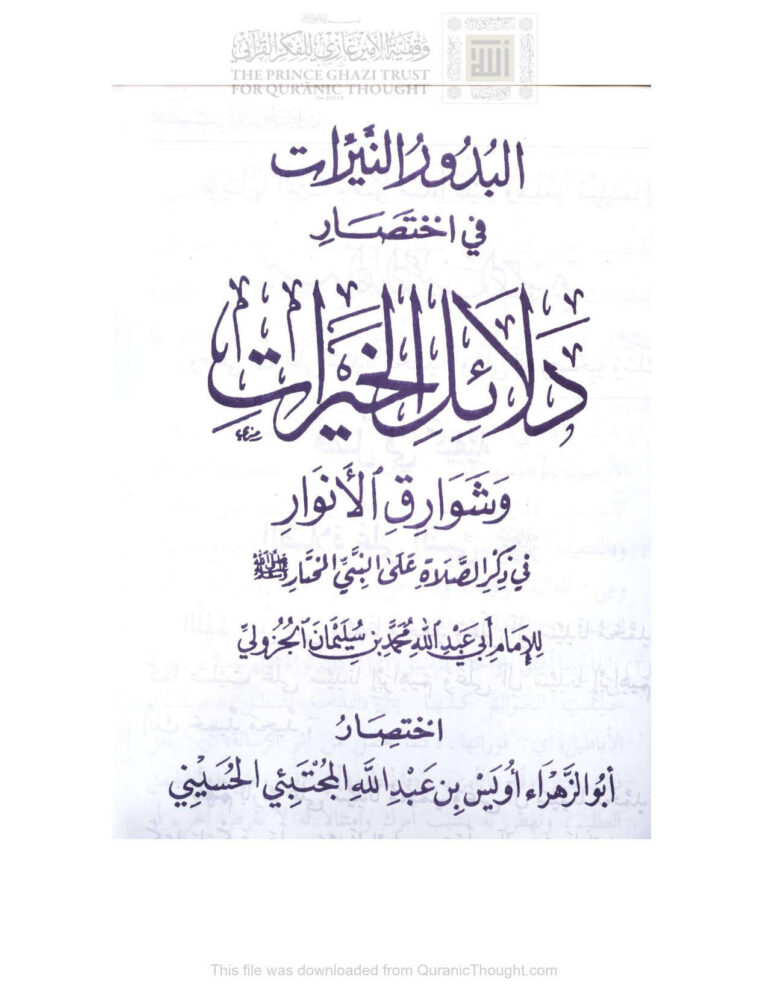 وقفية الأمير غازي للفكر القرآني
THE PRINCE GHAZI TRUST
FOR QUR'ĀNIC THOUGHT
البُدُورُ النَّيِّرَات
في اخْتَصَارِ
دَلَائِلِ الخَيْرَاتِ
وَشَوَارِقِ الأَنوَارِ
في ذِكْرِ الصَّلَاةِ عَلَى النَّبِيِّ المُخْتَارِ ﷺ
لِلإِمَامِ أَبِي عَبْدِ اللهِ مُحَمَّدِ بن سُلَيْمَانَ الجُزُوليِّ
اخْتِصَارُ
أبُو الزَّهْرَاء أُوَيْس بِن عَبْدِ اللَّهِ المُجْتَبَئي الحُسَيْني
This file was downloaded from QuranicThought.com